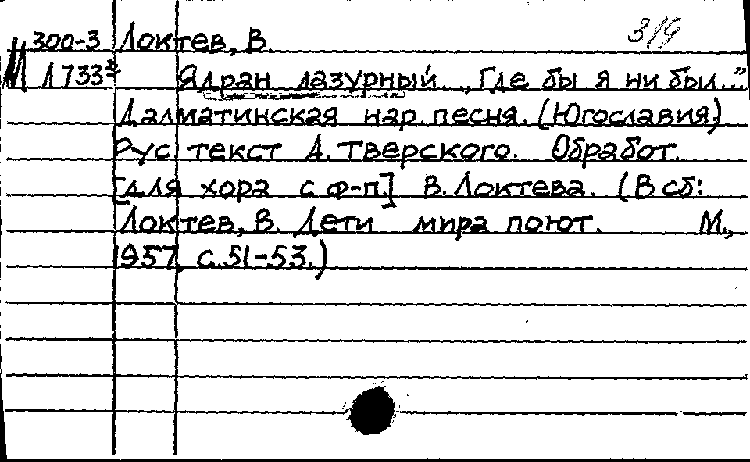 300-3 Локтев, В. 3/9
М Л 733 Ядран лазурный. „Где бы я ни был..."
Далматинская нар. песня. (Югославия)
Рус. текст А. Тверского. Обработ.
[для хора с ф-п] В. Локтева. (В сб:
Локтев, В. Дети мира поют. М.,
1957, с. 51-53.)